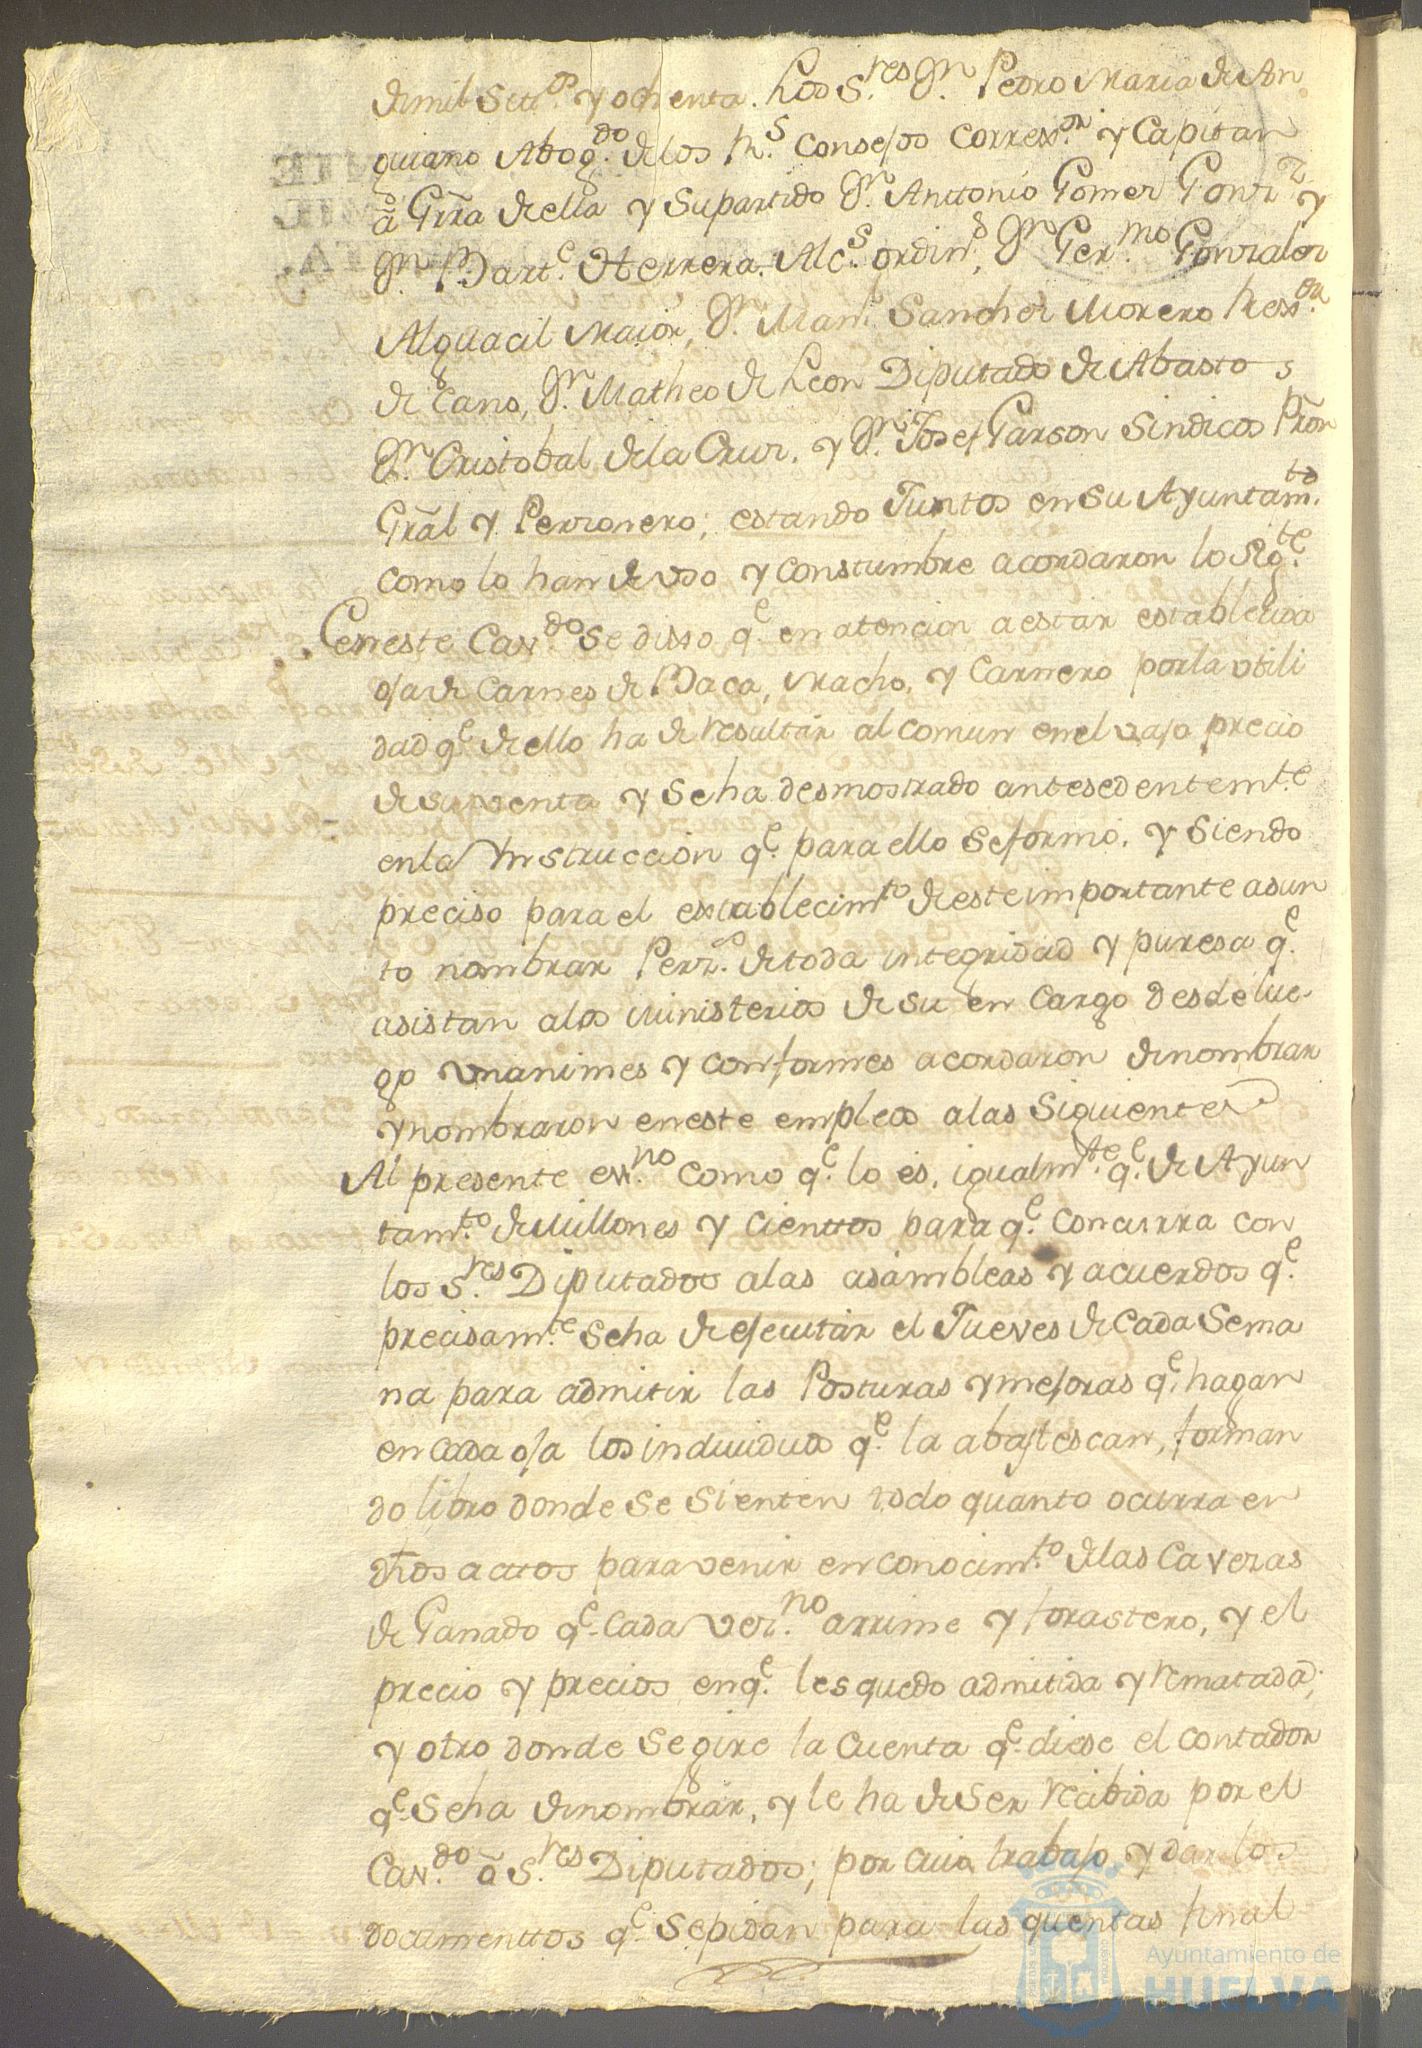 de mil Setos. y ochenta. Los S.res Dn. Pedro Maria de An
guiano Abog.do de los Rs. Consejos Correxor. y Capitan
â Grra de ella y Supartido Dn. Anttonio Gomez Gonzz. y
Dn. Barte. Herrera. Alcs. ordins., Dn. Germo. Gonzalez
Alguacil Maior, Dn. Manl. Sanchez Moreno Rexor.
de Cano, Dn. Matheo de Leon Diputado de Abastos
Dn. Cristobal de la Cruz. y Dn. Josef Garson Sindicos Prōn
Grāl y Perzonero; estando Juntos en su Ayuntamto.
como lo han de uso y constumbre acordaron lo Sigte.
En este Cavdo. se disso qe. en atencion a estar establecida
oja de Carnes de Baca, Macho, y Carnero por la utili
dad qe. de ello ha de resultar al comun en el vajo precio
de su venta y se ha desmostrado antesedentemte.
en la Ynstruccion qe. para ello se formó. y siendo
preciso para el establecimto. de este importante asun
to nombrar Perzs. de toda integridad y puresa qe.
asistan a los ministerios de su en Cargo desde lue-
go unanimes y conformes acordaron de nombrar
y nombraron en este empleo a las Siguientes
Al presente essno. como qe. lo es, igualmte. qe. de Ayun
tamto. de Millones y cienttos para qe. concurra con
los S.res Diputados a las asambleas y acuerdos qe.
precisamte. se ha de ejecutar el Jueves de Cada Sema
na para admitir las Posturas y mejoras qe. hagan
en cada oja los individuos qe. la abastescan, forman
do libro donde se sienten todo quanto ocurra en
dhos acttos para venir en conocimto. de las Caveras
de Ganado qe. Cada vezno. arrime y forastero, y el
precio y precios en qe. les quedo admitida y rematada;
y otro donde se gire la Cuenta qe. diese el contador
qe. se ha de nombrar, y le ha de Ser recibida por el
Cavdo. ô S.res Diputados; por cuio trabajo y dar los
documenttos qe. se pidan para las quentas final
Ayuntamiento de
HUELVA